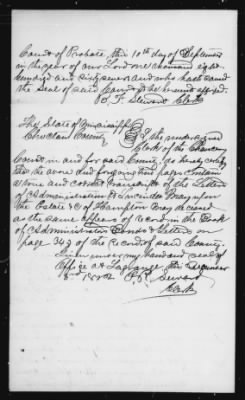 Court of Probate, this 10th day of September
in the year of our Lord one thousand eight
hundred and sixty seven and who hath caused
the Seal of said Court to be hereunto affixed.
F. Stewart Clerk
The State of Mississippi
Choctaw County
I the undersigned
Clerk of the Chancery
Court in and for said County, do hereby certify
that the above and foregoing pages contain
a true and correct Transcript of the Letters
of Administration to Lucinda May upon
the Estate &c of Hampton May deceased
as the same appears of record in the Book
of Administration Bonds & Letters on
page 349 of the record of said County.
Given under my hand and seal of
Office at Lagrange this
Stewart
Clerk